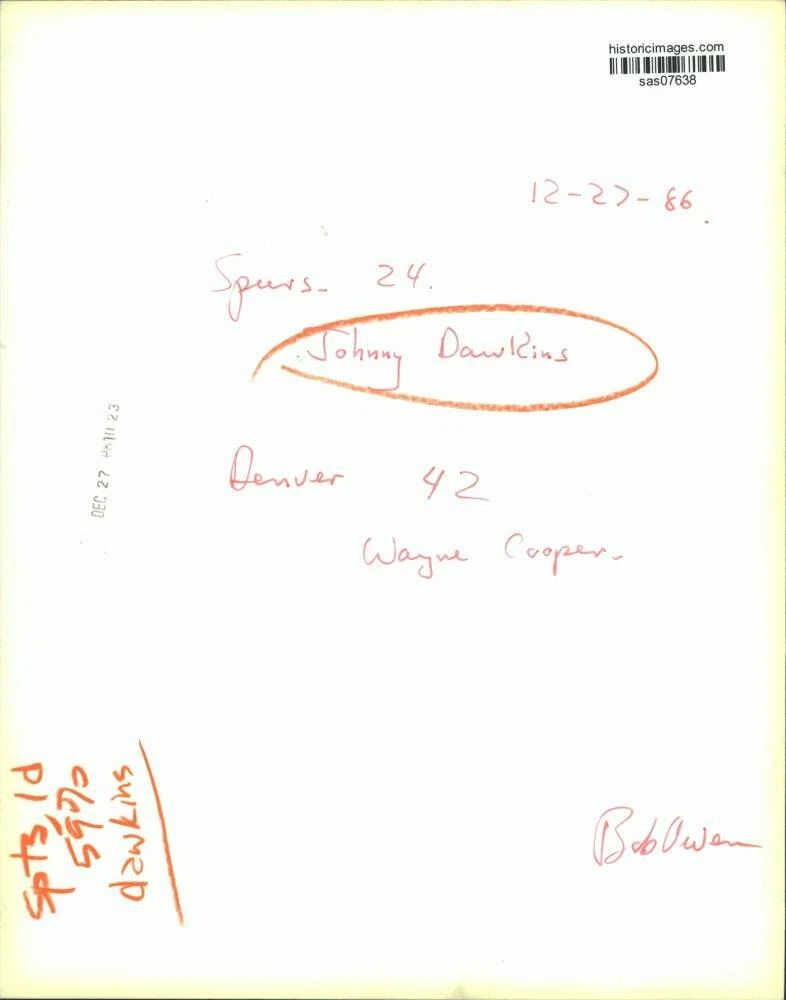 historicimages.com
sas07638
12-27-86.
Spurs- 24.
Johnny Dawkins
Denver 42
Wayne Cooper-
DEC 27 PM 11 23
Spts, 1d
59%
dawkins
Bob Owen